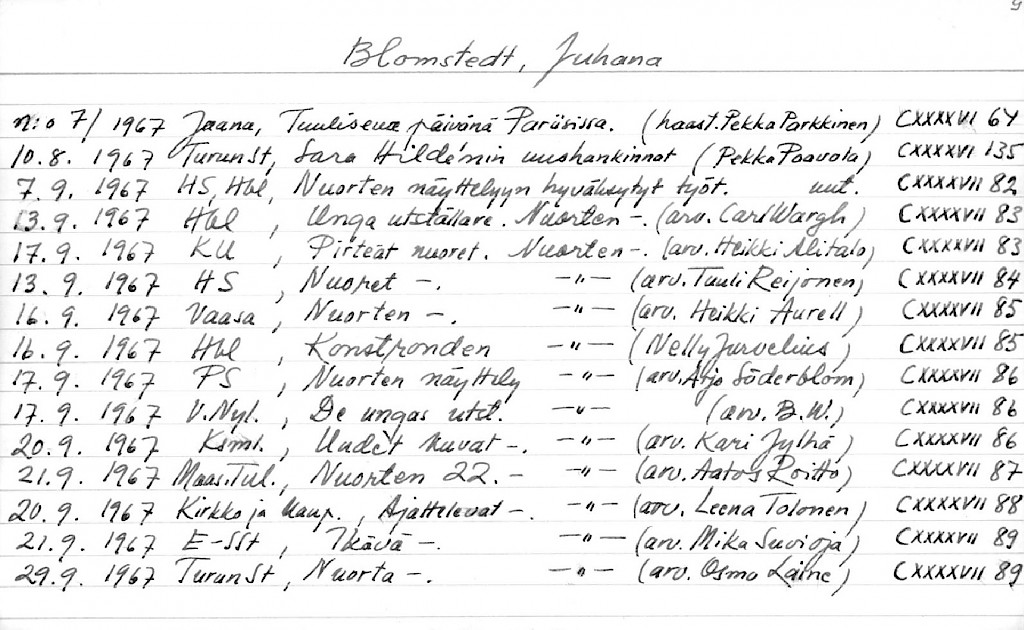 9
Blomstedt, Juhana
n:o 7/ 1967 Jaana, Tuulisena päivänä Pariisissa. (haast. Pekka Parkkinen) CXXXXVI 64
10.8. 1967 TurunSt, Sara Hildénin uushankinnat (Pekka Paavola) CXXXXVI 135
7.9. 1967 HS, Hbl, Nuorten näyttelyyn hyväksytyt työt. uut. CXXXXVII 82
13.9. 1967 Hbl , Unga utställare. Nuorten -. (arv. Carl Wargh) CXXXXVII 83
17.9. 1967 KU , Pirteät nuoret. Nuorten -. (arv. Heikki Alitalo) CXXXXVII 83
13.9. 1967 HS , Nuoret -. -"- (arv. Tauli Reijonen) CXXXXVII 84
16.9. 1967 Vaasa , Nuorten -. -"- (arv. Heikki Aurell) CXXXXVII 85
16.9. 1967 Hbl , Konstronden -"- (Nelly Jurvelius) CXXXXVII 85
17.9. 1967 PS , Nuorten näyttely -"- (arv. Arjo Söderblom) CXXXXVII 86
17.9. 1967 V.Nyl. , De ungas utst. -"- (arv. B.W.) CXXXXVII 86
20.9. 1967 Ksml. , Uudet kuvat -. -"- (arv. Kari Jylhä) CXXXXVII 86
21.9. 1967 Maas.Tul., Nuorten 22. - -"- (arv. Aatos Roitto) CXXXXVII 87
20.9. 1967 Kirkko ja kaup. , Ajattelevat -. -"- (arv. Leena Tolonen) CXXXXVII 88
21.9. 1967 E-SSt , Ikävä -. -"- (arv. Mika Suvioja) CXXXXVII 89
29.9. 1967 TurunSt , Nuorta -. -"- (arv. Osmo Laine) CXXXXVII 89